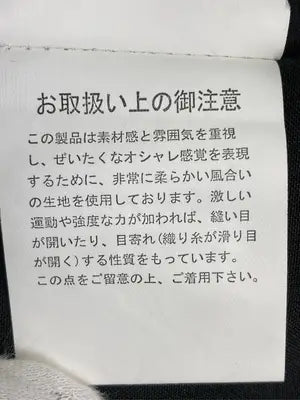 お取扱い上の御注意
この製品は素材感と雰囲気を重視
し、ぜいたくなオシャレ感覚を表現
するために、非常に柔らかい風合い
の生地を使用しております。激しい
運動や強度な力が加われば、縫い目
が開いたり、目寄れ(織り糸が滑り目
が開く)する性質をもっています。
この点をご留意の上、ご着用下さい。